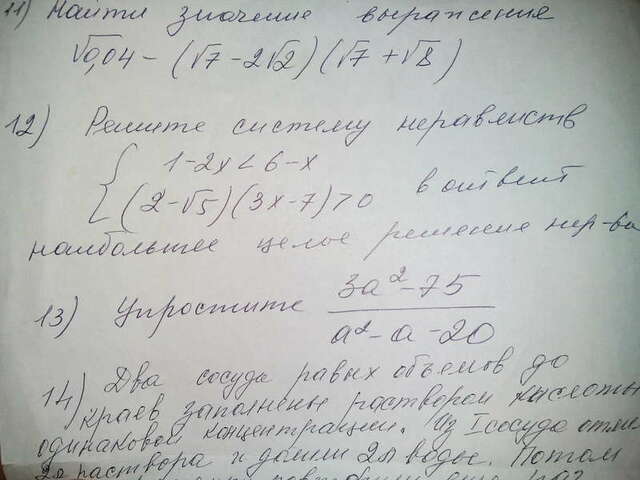 11) Найти значение выражения
√0,04 - (√7 - 2√2)(√7 + √8)
12) Решите систему неравенств
{ 1-2x < 6-x
(2-√5)(3x-7) > 0 в ответ
наибольшее целое решение нер-ва
13) Упростите (3a² - 75)/(a² - a - 20)
14) Два сосуда равых объемов до
краев заполнены раствором кислоты
одинаковой концентрации. Из I сосуда отли
2л раствора и долили 2л воды. Потом